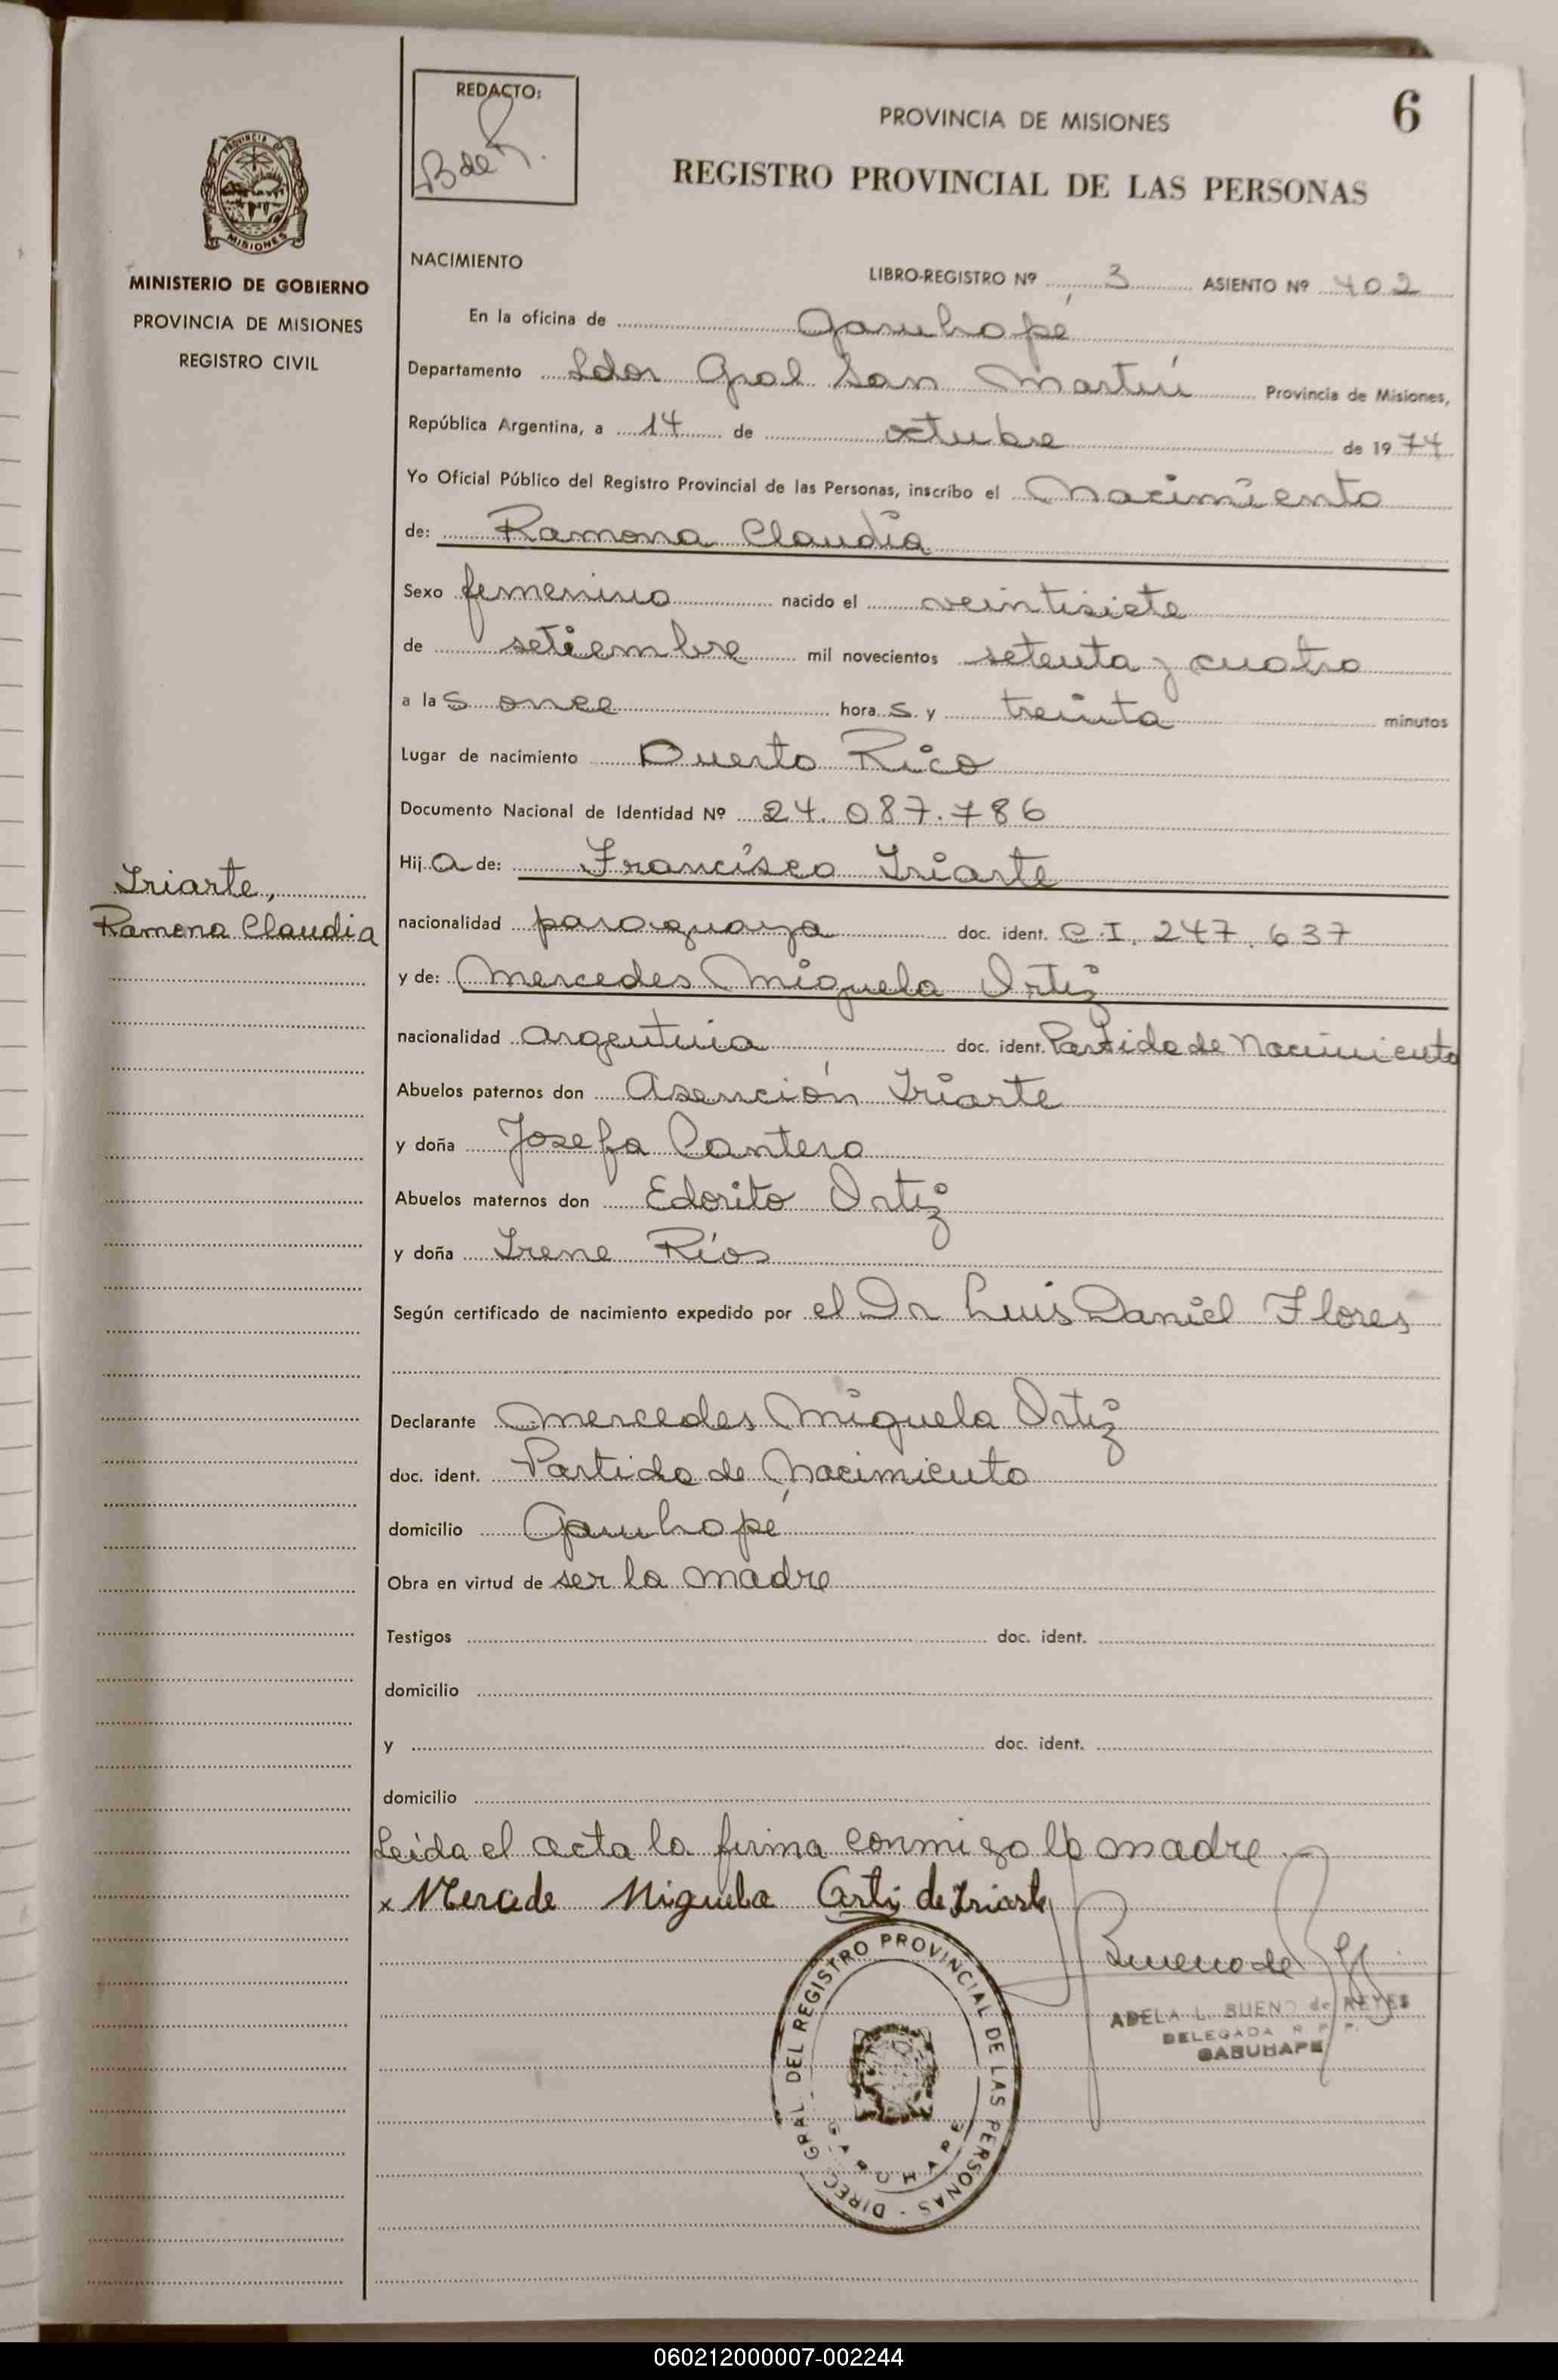 6
REDACTO:
B de R.
PROVINCIA DE MISIONES
REGISTRO PROVINCIAL DE LAS PERSONAS
PROVINCIA
MISIONES
MINISTERIO DE GOBIERNO
PROVINCIA DE MISIONES
REGISTRO CIVIL
NACIMIENTO
LIBRO-REGISTRO Nº 3 ASIENTO Nº 402
En la oficina de Garuhapé
Departamento Ldor Gral San Martín Provincia de Misiones,
República Argentina, a 14 de octubre de 1974
Yo Oficial Público del Registro Provincial de las Personas, inscribo el Nacimiento
de: Ramona Claudia
Sexo femenino nacido el veintisiete
de setiembre mil novecientos setenta y cuatro
a las once horas y treinta minutos
Lugar de nacimiento Puerto Rico
Documento Nacional de Identidad Nº 24.087.786
Hija de: Francisco Iriarte
Iriarte,
Ramona Claudia
nacionalidad paraguaya doc. ident. C.I. 247.637
y de: Mercedes Miguela Ortiz
nacionalidad argentina doc. ident. Partida de Nacimiento
Abuelos paternos don Asención Iriarte
y doña Josefa Cantero
Abuelos maternos don Edorito Ortiz
y doña Irene Ríos
Según certificado de nacimiento expedido por el Dr Luis Daniel Flores
Declarante Mercedes Miguela Ortiz
doc. ident. Partida de Nacimiento
domicilio Garuhapé
Obra en virtud de ser la madre
Testigos doc. ident.
domicilio
y doc. ident.
domicilio
Leida el acta la firma conmigo la madre
x Mercede Miguela Orti de Iriarte
Bueno de
ADELA L. BUENO de REYES
DELEGADA R P P.
GARUHAPE
DIREC. GRAL. DEL REGISTRO PROVINCIAL DE LAS PERSONAS -
GARUHAPE
060212000007-002244